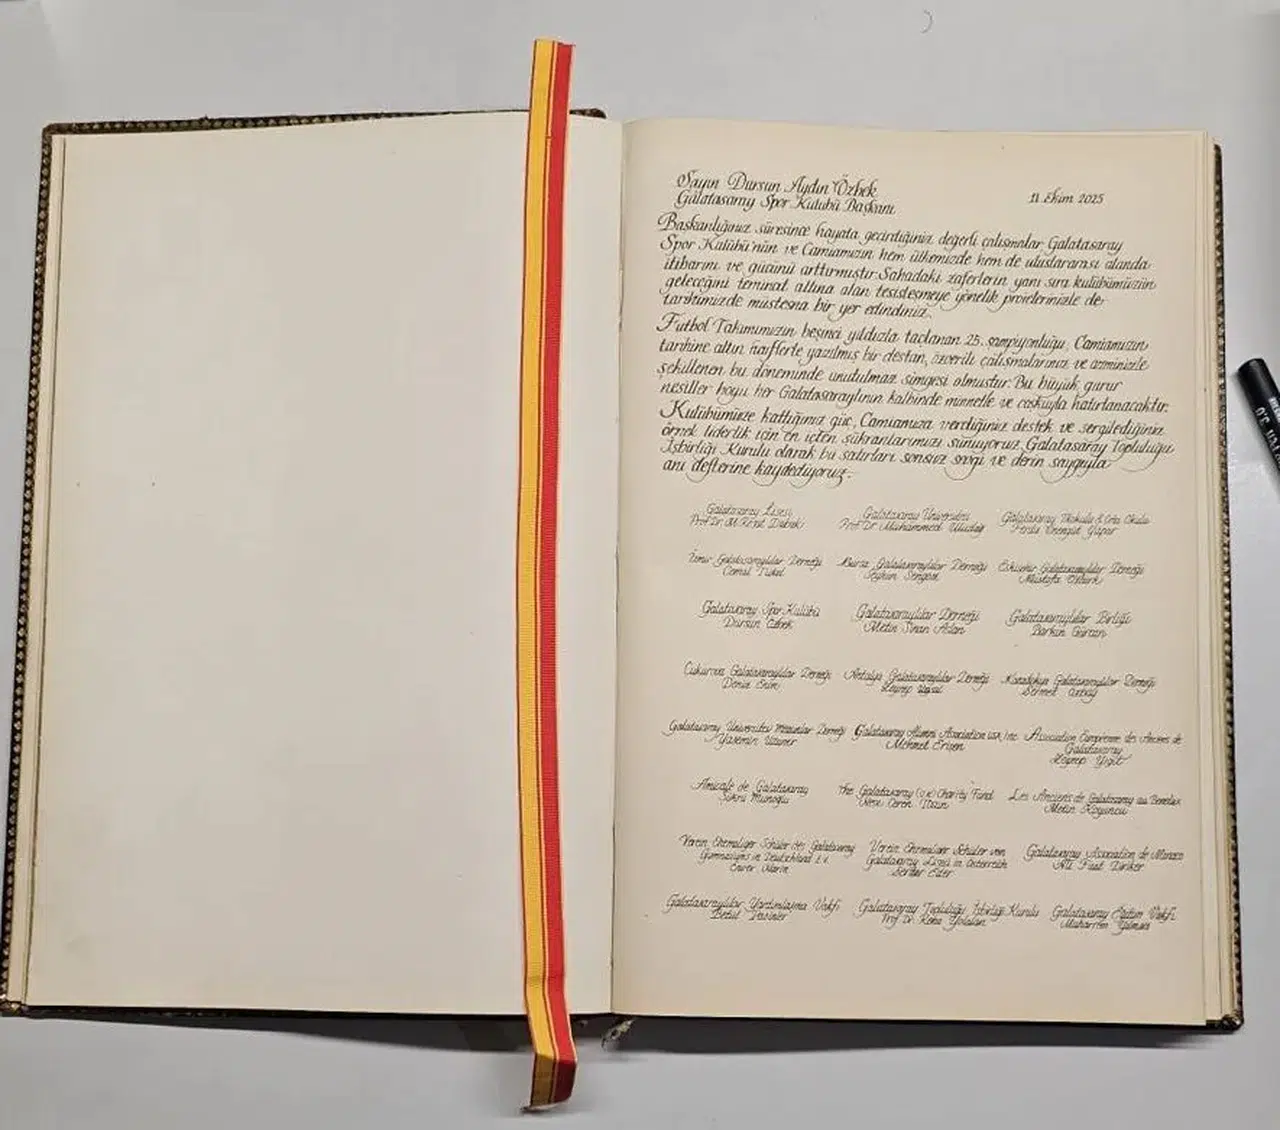 Sayın Dursun Aydın Özbek
Galatasaray Spor Kulübü Başkanı
11 Ekim 2025
Başkanlığınız süresince hayata geçirdiğiniz değerli çalışmalar Galatasaray
Spor Kulübü'nün ve Camiamızın hem ülkemizde hem de uluslararası alanda
itibarını ve gücünü arttırmıştır. Sahadaki zaferlerin yanı sıra kulübümüzün
geleceğini teminat altına alan tesisleşmeye yönelik projelerinizle de
tarihimizde müstesna bir yer edindiniz.
Futbol Takımımızın beşinci yıldızla taçlanan 25. şampiyonluğu, Camiamızın
tarihine altın harflerle yazılmış bir destan, özverili çalışmalarınız ve azminizle
şekillenen bu döneminde unutulmaz simgesi olmuştur. Bu büyük gurur
nesiller boyu her Galatasaraylının kalbinde minnetle ve coşkuyla hatırlanacaktır.
Kulübümüze kattığınız güç, Camiamıza verdiğiniz destek ve sergilediğiniz
örnek liderlik için en içten şükranlarımızı sunuyoruz. Galatasaray Topluluğu
İşbirliği Kurulu olarak bu satırları sonsuz sevgi ve derin saygıyla
anı defterine kaydediyoruz.
Galatasaray Lisesi
Prof. Dr. M.
Galatasaray Üniversitesi
Prof. Dr. Muhammed Uludağ
Galatasaray İlkokulu & Orta Okulu
Yapar
İzmir Galatasaraylılar Derneği
Cemal
Bursa Galatasaraylılar Derneği
Eskişehir Galatasaraylılar Derneği
Mustafa Öztürk
Galatasaray Spor Kulübü
Dursun Özbek
Galatasaraylılar Derneği
Metin Sinan Aslan
Galatasaraylılar Birliği
Çukurova Galatasaraylılar Derneği
Antalya Galatasaraylılar Derneği
Zeynep
Karadeniz Galatasaraylılar Derneği
Galatasaray Üniversitesi Mezunlar Derneği
Yasemin
Galatasaray Alumni Association USA Inc.
Mehmet Erişen
Association Européenne des Anciens de
Galatasaray
Zeynep Yiğit
Amicale de Galatasaray
Şükrü
The Galatasaray (U.K) Charity Fund
Ceren
Les Anciens de Galatasaray au Benelux
Metin Koyuncu
Verein Ehemaliger Schüler des Galatasaray
Gymnasiums in Deutschland e.V.
Verein Ehemaliger Schüler von
Galatasaray Lisesi in Österreich
Galatasaray Association de Monaco
Ali Fuat
Galatasaraylılar Yardımlaşma Vakfı
Betül
Galatasaray Topluluğu İşbirliği Kurulu
Prof. Dr.
Galatasaray Eğitim Vakfı
Muharrem